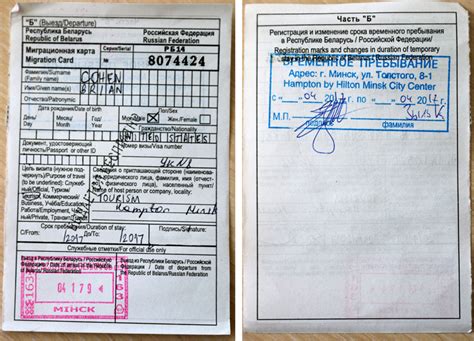 "Б" (Выезд/Departure)
Республика Беларусь
Republic of Belarus
Российская Федерация
Russian Federation
Миграционная карта
Migration Card
Серия/Serial
РБ14
8074424
Фамилия/Surname
(Family name)
COHEN
Имя/Given name(s)
BRIAN
Отчество/Patronymic
Дата рождения/Date of birth
Пол/Sex
День/
Day
Месяц/
Month
Год/
Year
Муж./
Male
Жен./
Female
Гражданство/Nationality
UNITED STATES
Документ, удостоверяющий
личность/Passport or other ID
Номер визы/Visa number
Цель визита (нужное под-
черкнуть)/Purpose of travel
(to be underlined): Служеб-
ный/Official, Туризм/
Tourism, Коммерческий/
Business, Учеба/Education,
Работа/Employment,
Частный/Private, Транзит/
Transit
Сведения о приглашающей стороне (наименование
юридического лица, фамилия, имя (отчест-
во) физического лица), населенный пункт/
Name of host person or company, locality:
TOURISM
Hampton Minsk
Срок пребывания/Duration of stay:
С/From:
До/To:
2017
2017
Подпись/Signature:
Служебные отметки/For official use only
Въезд в Республику Беларусь/Российскую
Федерацию / Date of arrival in the Republic
of Belarus/Russian Federation
Выезд из Республики Беларусь/Российской
Федерации / Date of departure from
the Republic of Belarus/Russian Federation
04179
163
МІНСК
Часть "Б"
Регистрация и изменение срока временного пребывания
в Республике Беларусь / Российской Федерации/
Registration marks and changes in duration of temporary
stay in the Republic of Belarus/Russian Federation
ВРЕМЕННОЕ ПРЕБЫВАНИЕ
Адрес: г. Минск, ул. Толстого, 8-1
Hampton by Hilton Minsk City Center
с 04 2017 по 04 2017
М.П.
подпись
фамилия